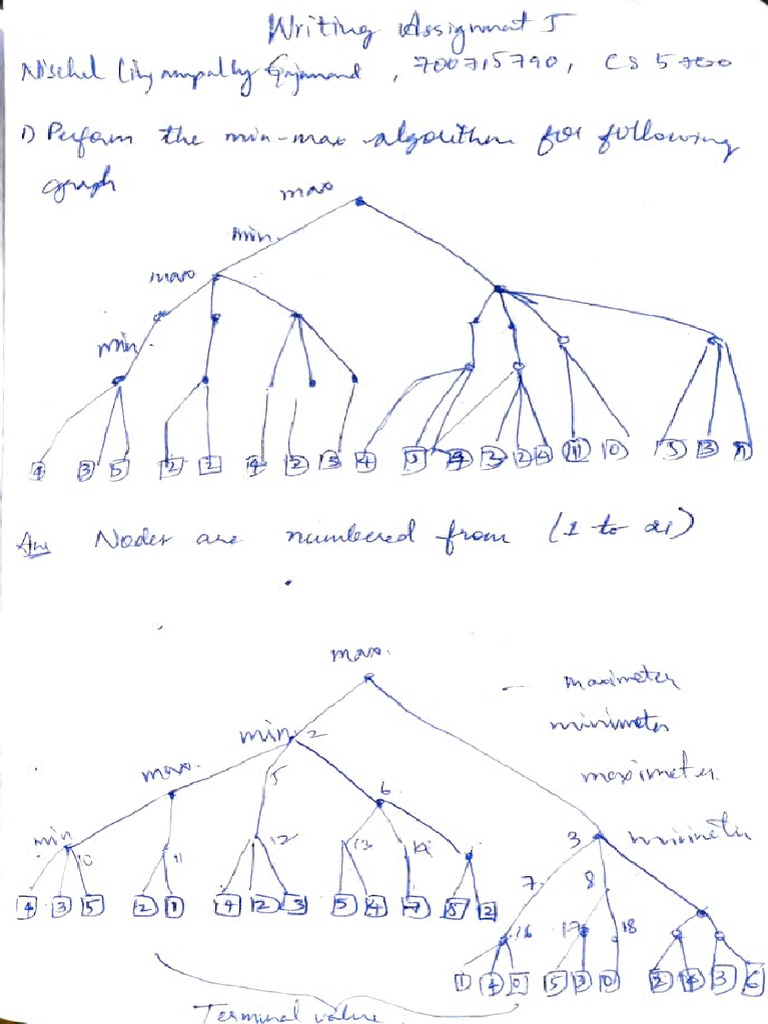 Writing Assignment 5
Nischel
Gajanand , 700715790, CS 5700
1) Perform the min-max algorithm for following
graph
max
min.
max
min.
4 3 5 2 2 4 2 3 4 5 4 3 2 4 11 10 5 3
Ans Nodes are numbered from (1 to 21)
max.
maximeter
min 2
minimeter
max.
5
6
maximeter
min 10 11 12 13 14
3 minimeter
4 3 5 2 1 4 2 3 5 4 7 5 2
7. 8
16 17 18
1 4 0 5 3 0 2 4 3 6
Terminal value